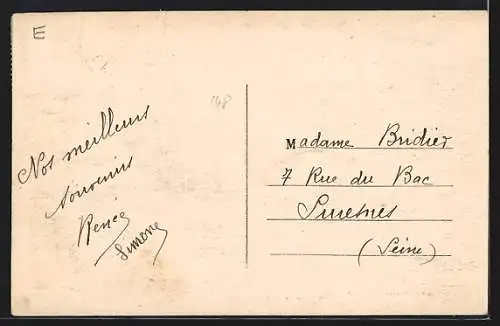 E
48
Nos meilleurs
souvenirs
Renée
Simone
Madame Bridier
7 Rue du Bac
Suresnes
(Seine)